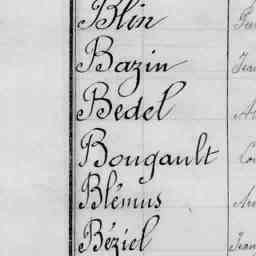 Blin
Bazin
Bedel
Bougault
Blémus
Béziel